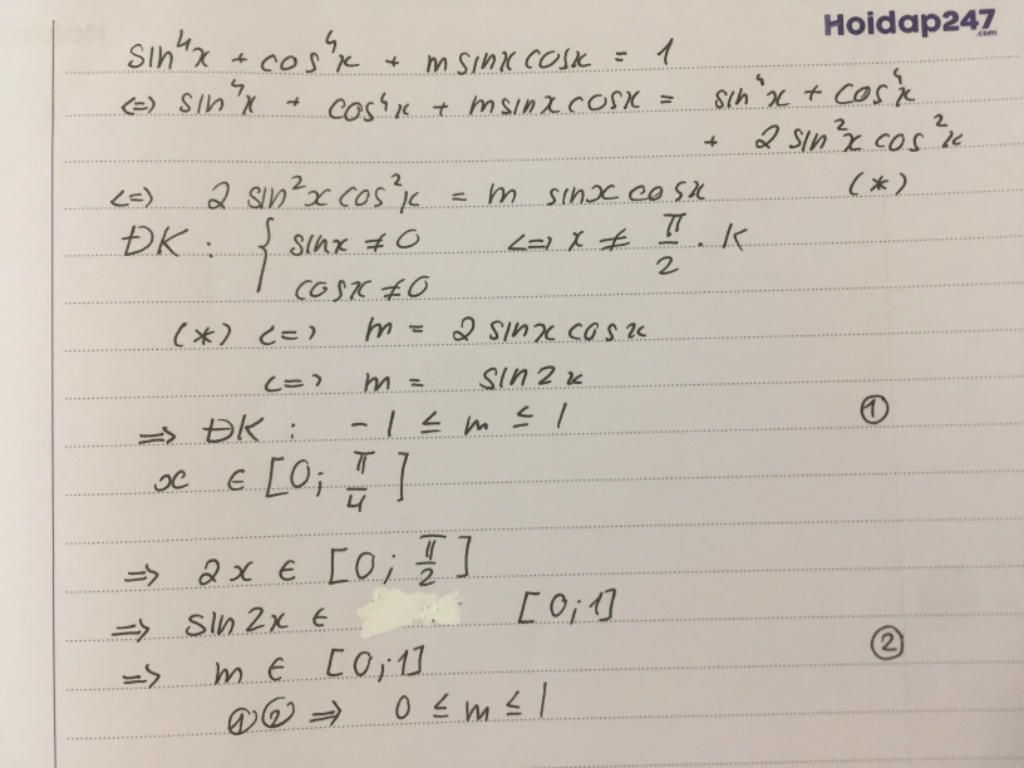 Hoidap247
.com
sin⁴x + cos⁴x + m sinx cosx = 1
<=> sin⁴x + cos⁴x + m sinx cosx = sin⁴x + cos⁴x
+ 2 sin²x cos²x
<=> 2 sin²x cos²x = m sinx cosx (*)
ĐK : { sinx ≠ 0 <=> x ≠ π/2 . K
cosx ≠ 0
(*) <=> m = 2 sinx cosx
<=> m = sin2x
=> ĐK : -1 ≤ m ≤ 1 ①
x ∈ [0; π/4]
=> 2x ∈ [0; π/2]
=> sin2x ∈ [0;1]
=> m ∈ [0;1] ②
①② => 0 ≤ m ≤ 1